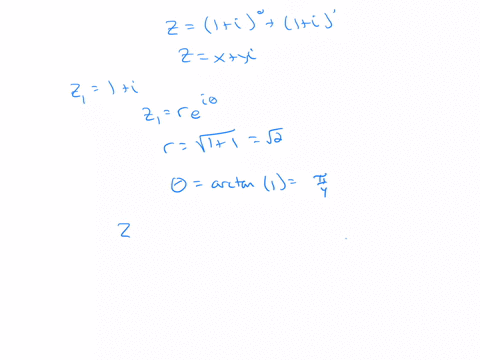 z = (1+i)^0 + (1+i)^1
z = x+yi
z_1 = 1+i
z_1 = re^{iθ}
r = √(1+1) = √2
θ = arctan (1) = π/4
z